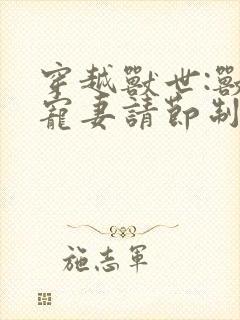 穿越獸世:獸
寵妻請節制
施志軍